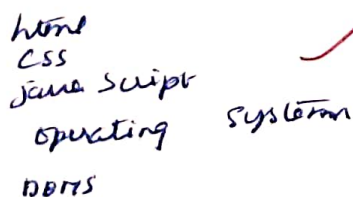 html
CSS
java script
operating system
DBMS